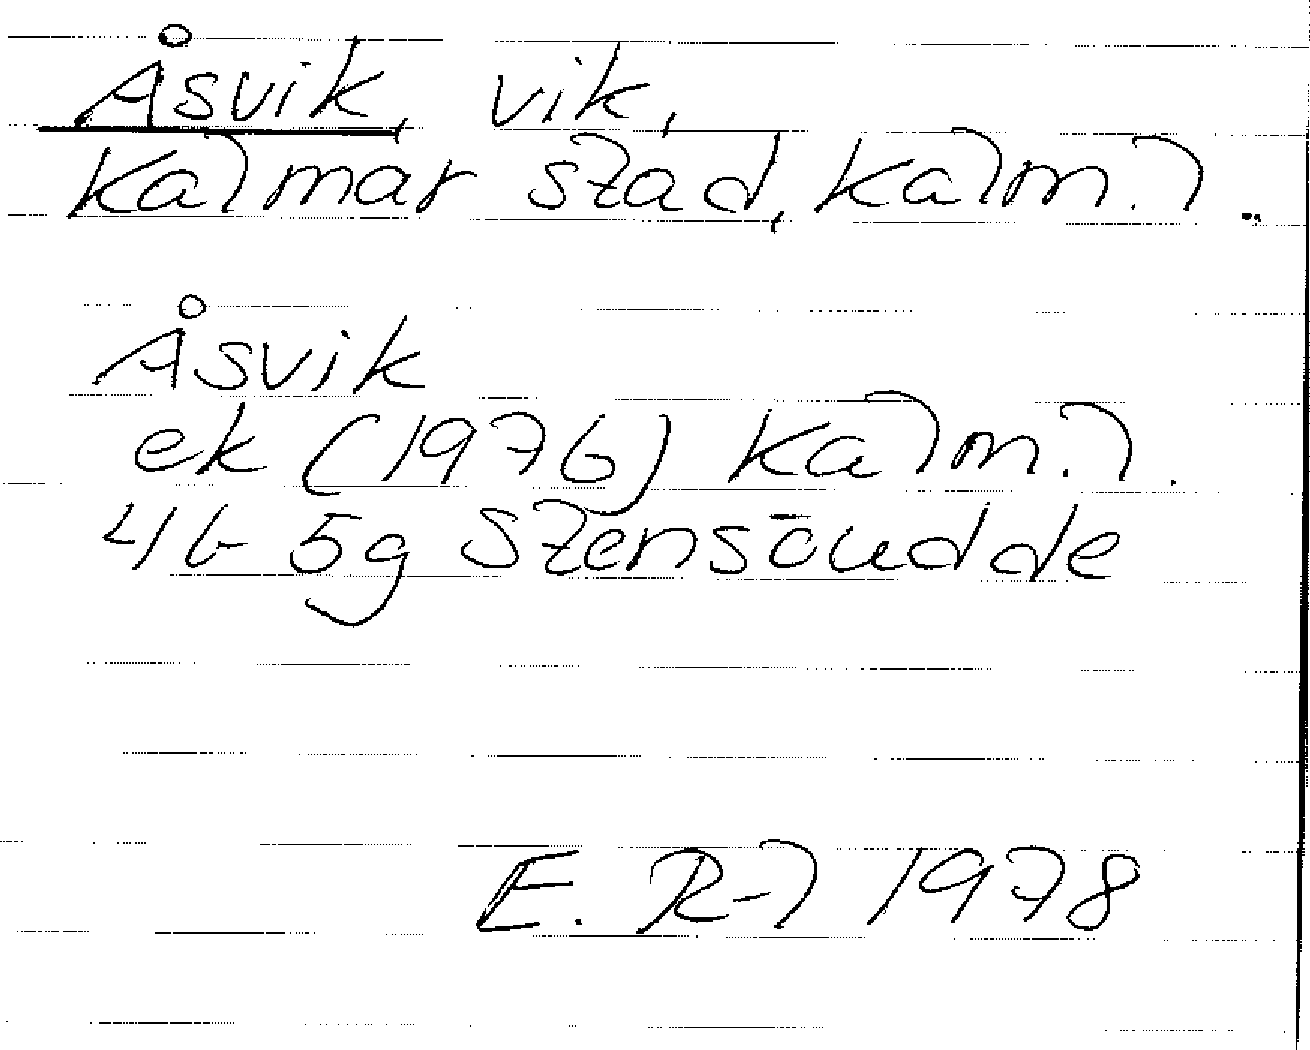 Åsvik, vik,
Kalmar stad, Kalm. l.
Åsvik
ek (1976) Kalm. l.
4G 5g Stensöudde
E. R-l 1978